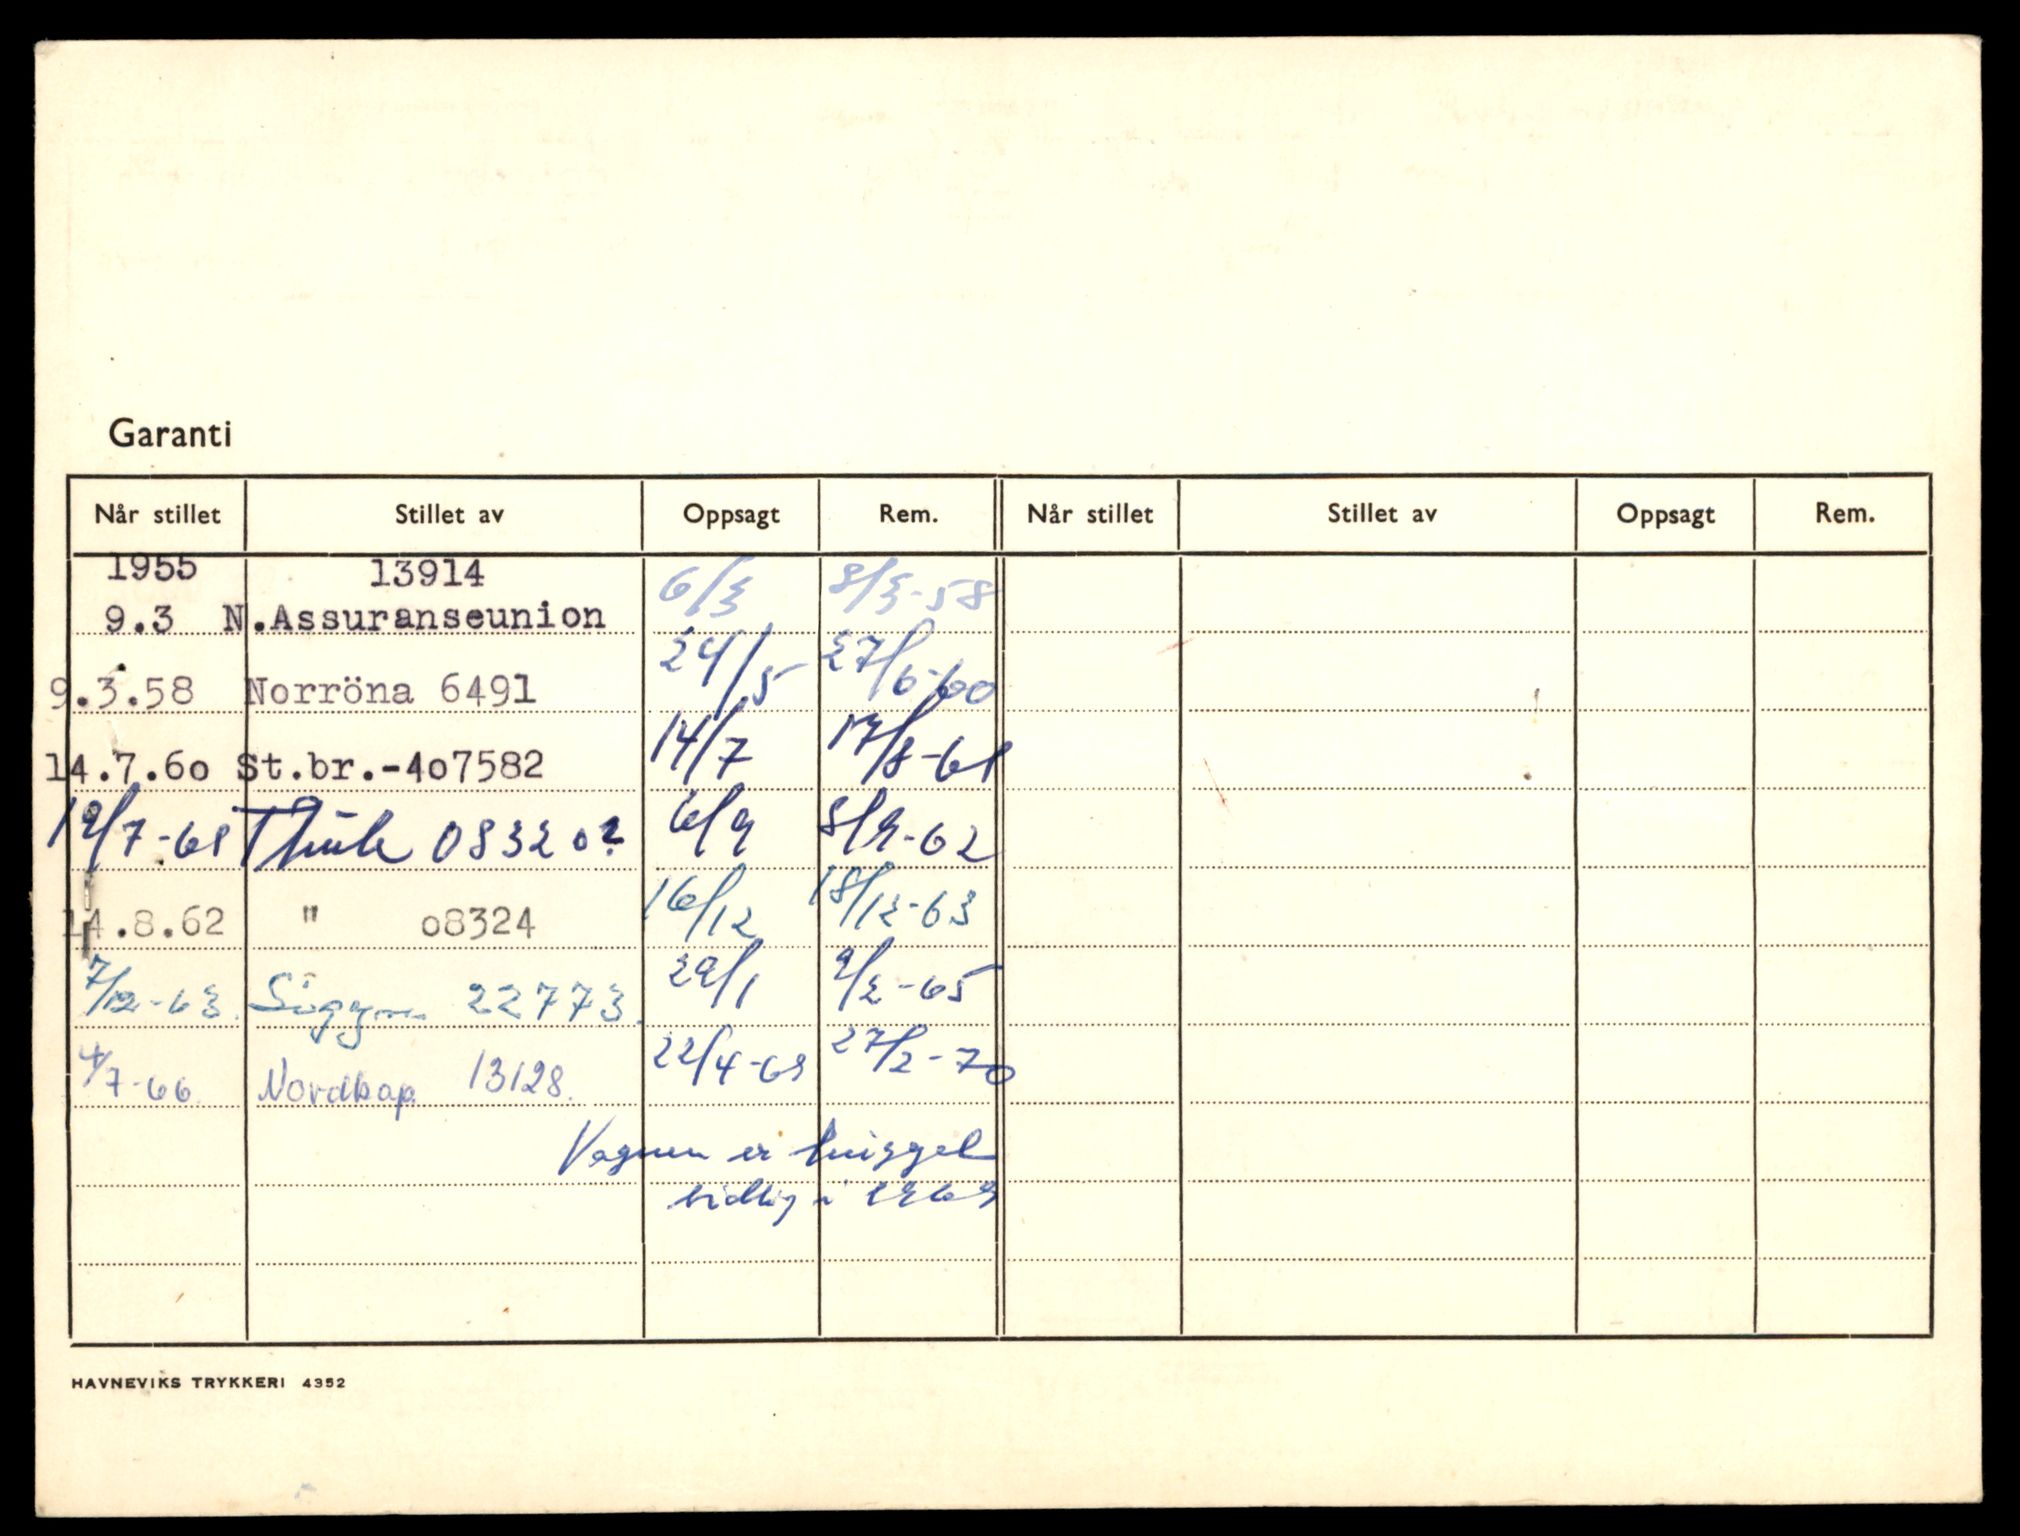 Garanti
Når stillet Stillet av Oppsagt Rem. Når stillet Stillet av Oppsagt Rem.
1955 13914 6/3 8/3-58
9.3 N.Assuranseunion
9.3.58 Norröna 6491 24/5 27/6-60
14.7.60 St.br.-407582 14/7 17/8-61
19/7-61 Thule 08320? 6/9 8/9-62
14.8.62 " 08324 16/12 18/12-63
7/12-63. Sigyn 22773. 29/1 9/2-65
4/7-66. Nordkap. 13128. 22/4-69 27/2-70
Vognen er hugget
tidlig i 1969
HAVNEVIKS TRYKKERI 4352